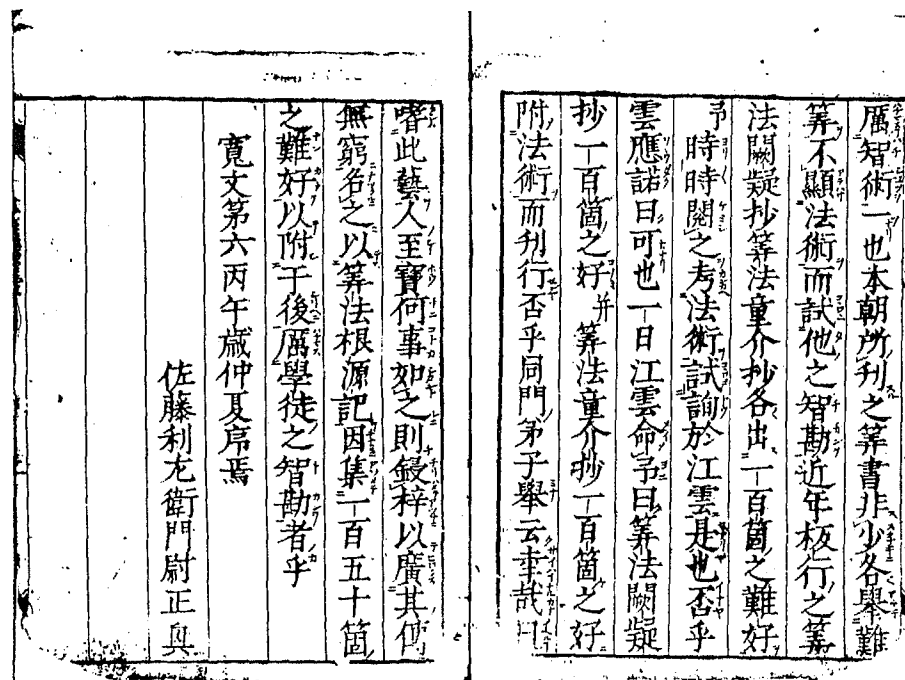 厲智術一也本朝所刊之筭書非少各舉難
筭不顯法術而試他之智勘近年板行之筭
法闕疑抄筭法童介抄各出一百箇之難好
予時時閱之考法術試詢於江雲是也否乎
雲應諾曰可也一日江雲命予曰筭法闕疑
抄一百箇之好并筭法童介抄一百箇之好
附法術而刊行否乎同門弟子舉云幸哉曰
嗜此藝人至寶何事如之則鋟梓以廣其傳
無窮名之以筭法根源記因集一百五十箇
之難好以附于後厲學徒之智勘者乎
寬文第六丙午歲仲夏序焉
佐藤利左衛門尉正興